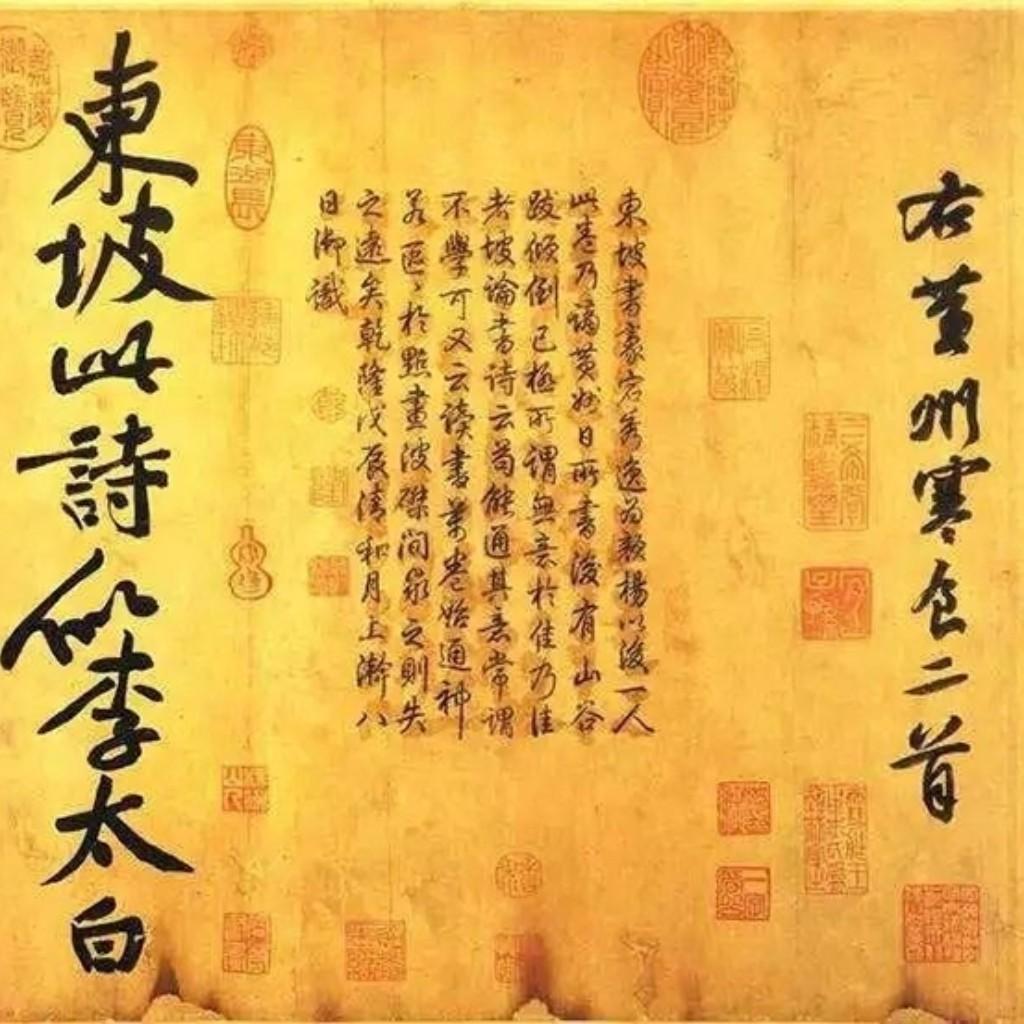 右黃州寒食二首
東坡書豪宕秀逸為顏楊以後一人
此卷乃謫黃州日所書後有山谷
跋傾倒已極所謂無意於佳乃佳
者坡論書詩云苟能通其意常謂
不學可又云讀書萬卷始通神
若區〻於點畫波磔間求之則失
之遠矣乾隆戊辰清和月上澣八
日御識
東坡此詩似李太白